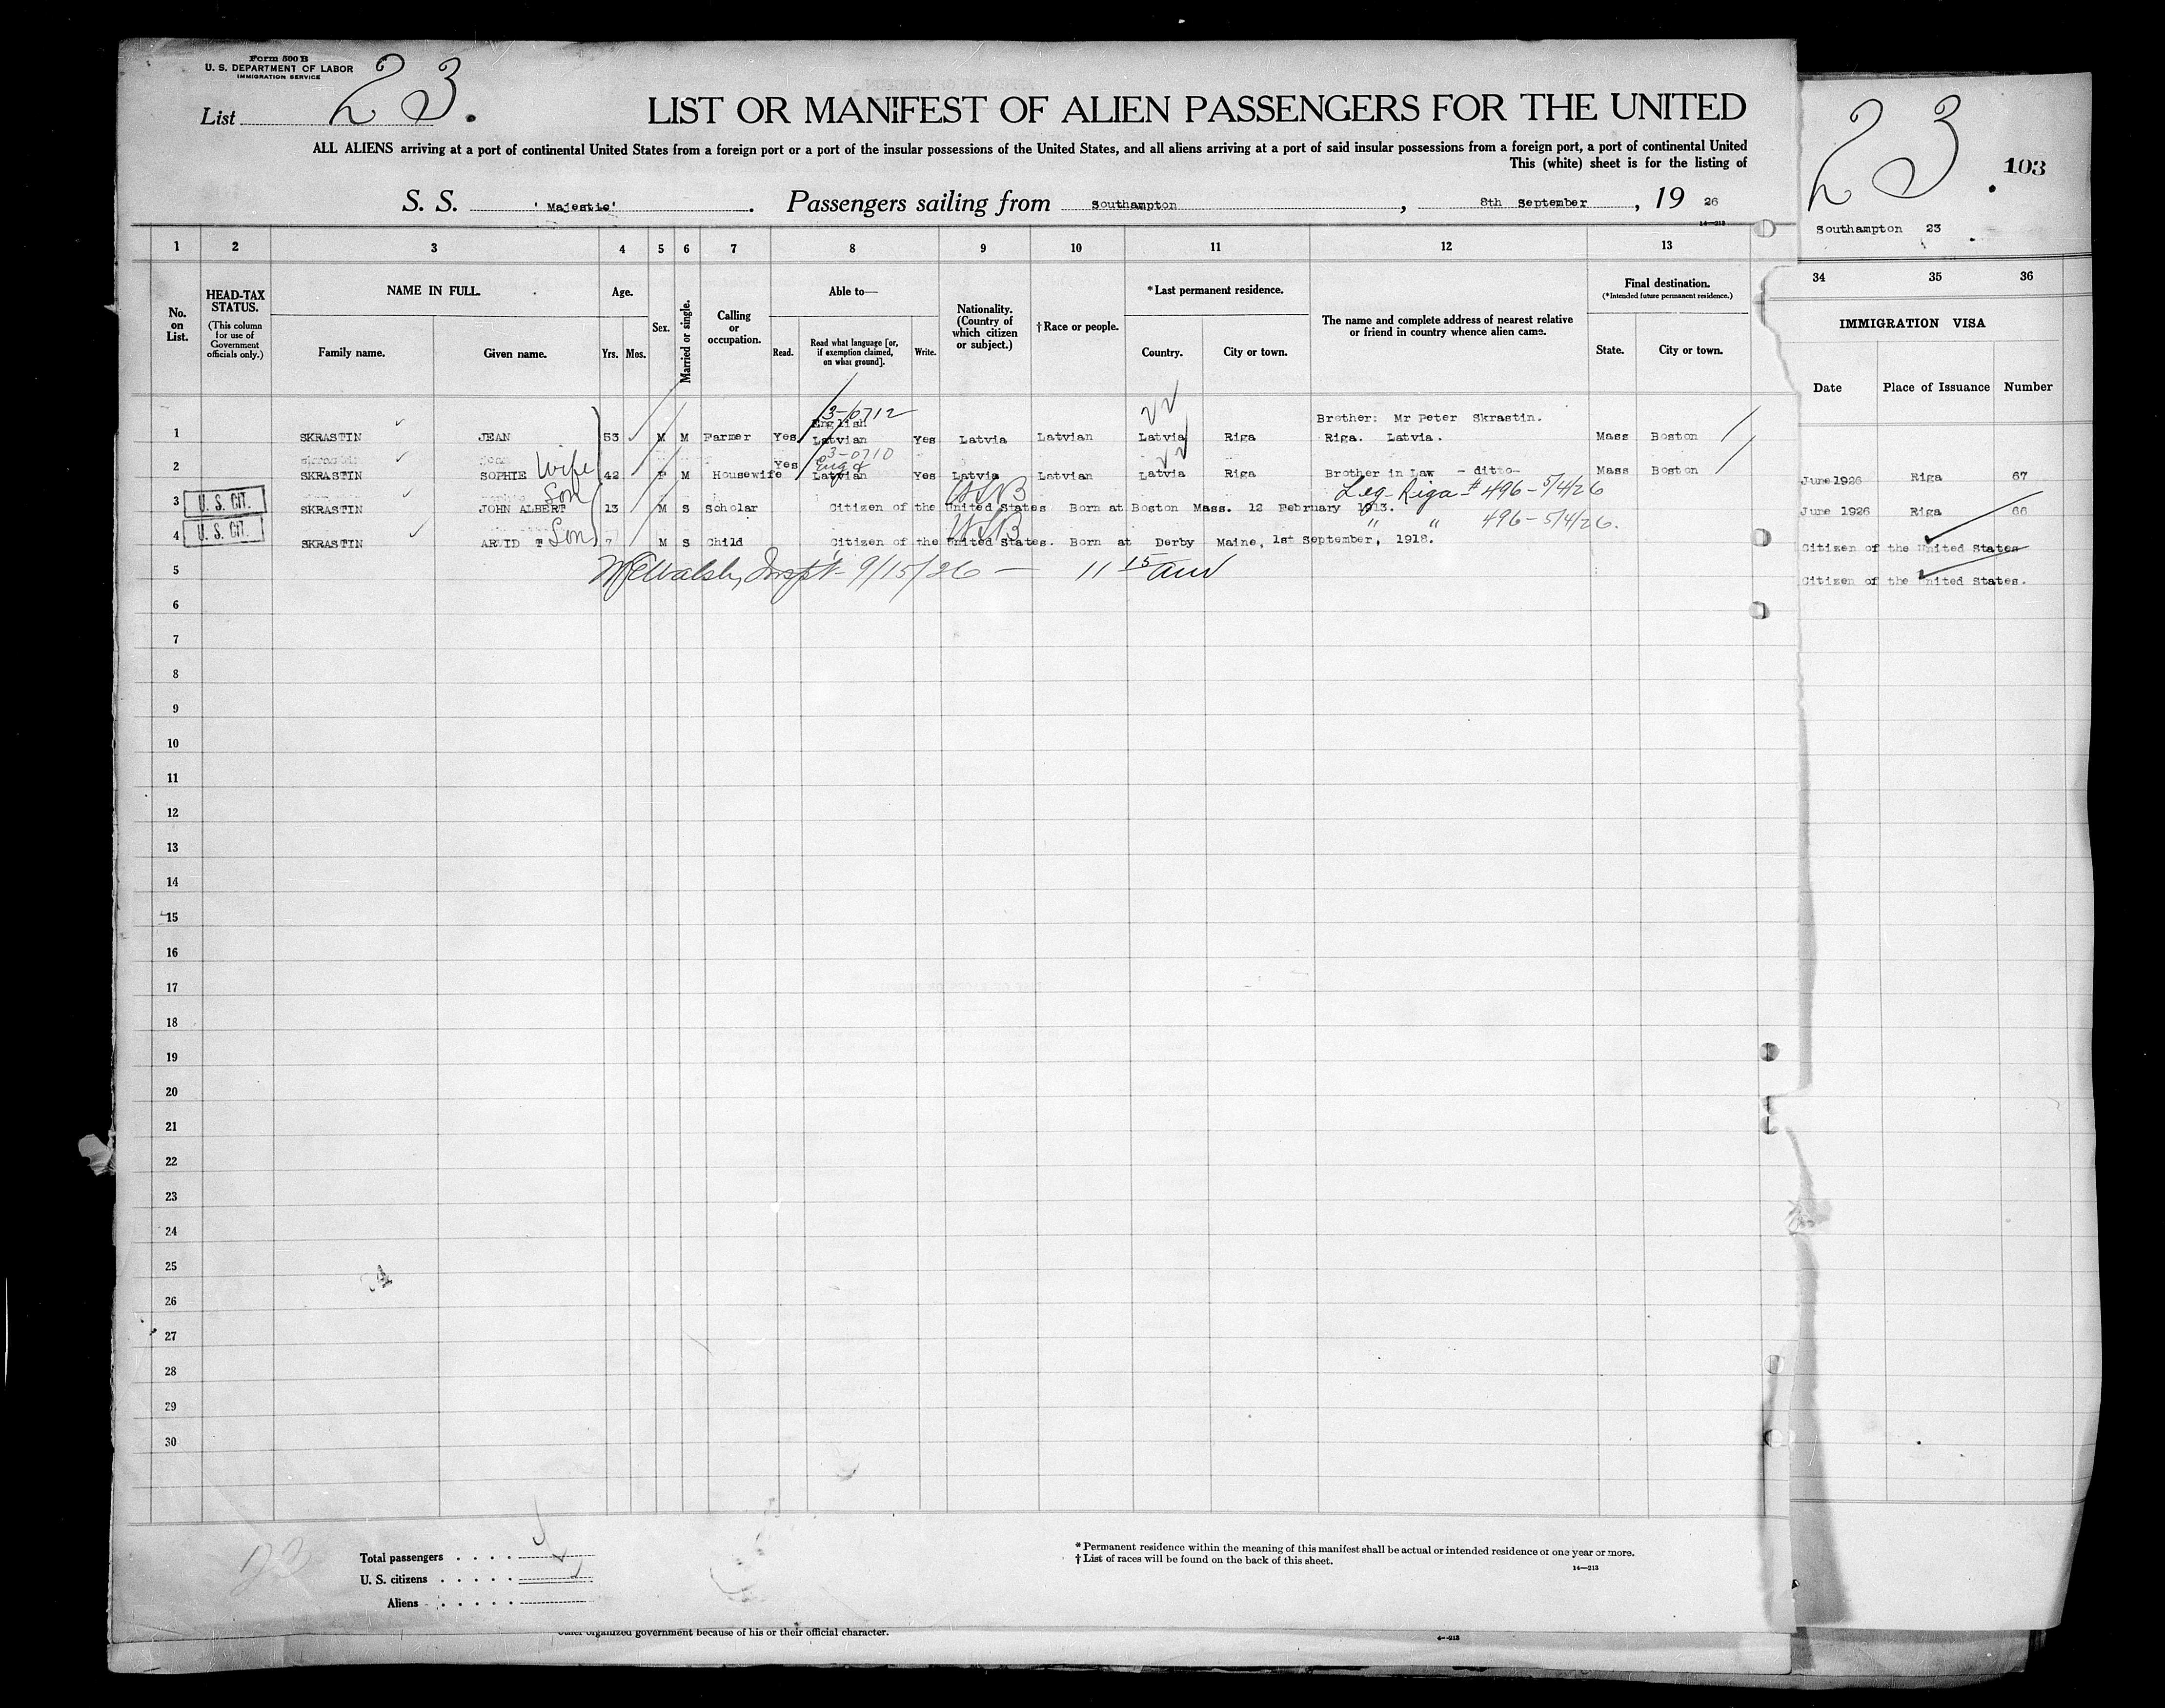 Form 500 B
U. S. DEPARTMENT OF LABOR
IMMIGRATION SERVICE
List 23.
LIST OR MANIFEST OF ALIEN PASSENGERS FOR THE UNITED
ALL ALIENS arriving at a port of continental United States from a foreign port or a port of the insular possessions of the United States, and all aliens arriving at a port of said insular possessions from a foreign port, a port of continental United
This (white) sheet is for the listing of
S. S. 'Majestic'. Passengers sailing from Southampton, 8th September, 19 26
14—213
23. 103
Southampton 23
1 2 3 4 5 6 7 8 9 10 11 12 13
34 35 36
No. on List.
HEAD-TAX STATUS.
(This column for use of Government officials only.)
NAME IN FULL.
Family name. Given name.
Age.
Yrs. Mos.
Sex.
Married or single.
Calling or occupation.
Able to—
Read. Read what language [or, if exemption claimed, on what ground]. Write.
Nationality. (Country of which citizen or subject.)
†Race or people.
*Last permanent residence.
Country. City or town.
The name and complete address of nearest relative or friend in country whence alien came.
Final destination.
(*Intended future permanent residence.)
State. City or town.
IMMIGRATION VISA
Date Place of Issuance Number
3-0712
English Brother: Mr Peter Skrastin.
1 SKRASTIN JEAN 53 M M Farmer Yes Latvian Yes Latvia Latvian Latvia Riga Riga. Latvia. Mass Boston
3-0710
2 SKRASTIN SOPHIE Wife 42 F M Housewife Yes Eng & Latvian Yes Latvia Latvian Latvia Riga Brother in Law - ditto- Mass Boston
June 1926 Riga 67
Leg- Riga-# 496-5/4/26
3 U. S. CIT. SKRASTIN JOHN ALBERT Son 13 M S Scholar Citizen of the United States Born at Boston Mass. 12 February 1913.
June 1926 Riga 66
" " 496-5/4/26.
4 U. S. CIT. SKRASTIN ARVID T Son 7 M S Child Citizen of the United States. Born at Derby Maine, 1st September, 1918.
Citizen of the United States
5 Walsh, Inspt- 9/15/26 — 11 15 am
Citizen of the United States.
6
7
8
9
10
11
12
13
14
15
16
17
18
19
20
21
22
23
24
25
26
27
28
29
30
23
Total passengers
U. S. citizens
Aliens
* Permanent residence within the meaning of this manifest shall be actual or intended residence of one year or more.
† List of races will be found on the back of this sheet.
14—213
other organized government because of his or their official character.